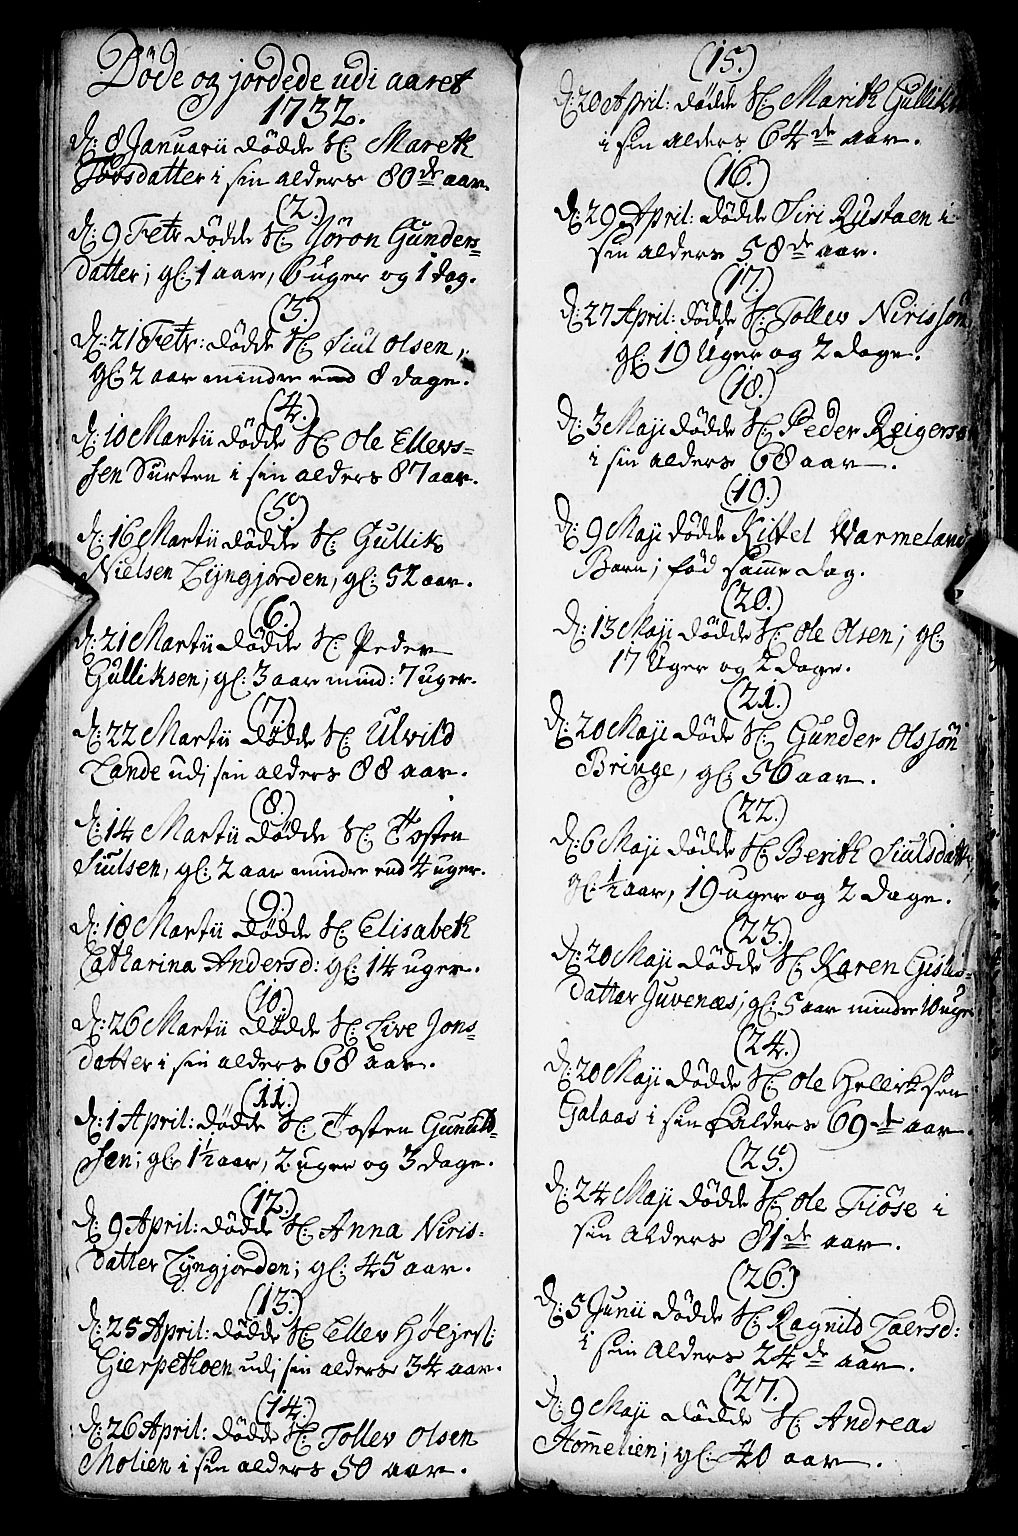 Döde og jordede udi aaret
1732.
D: 8 Januarii dödde S: Mareth
Joesdatter i sin alders 80de aar.
(2.)
D: 9 Febr dödde S: Jöron Gunders=
datter; gl: 1 aar, 6 uger og 1 dag.
(3.)
D: 21 Febr: dödde S: Siul Olsen,
gl: 2 aar mindre end 8 dage.
(4.)
D: 10 Martii dödde S: Ole Ellevs=
sen Surten i sin alders 87 aar.
(5.)
D: 16 Martii dödde S: Gullik
Nielsen Lyngjorden, gl: 52 aar.
(6.)
D: 21 Martii dödde S: Peder
Gulliksen; gl: 3 aar mind: 7 uger.
(7.)
D: 22 Martii dödde S: Ulvild
Lande udi sin alders 88 aar.
(8.)
D: 14 Martii dödde S: Tosten
Siulsen, gl: 2 aar mindre end 4 uger.
(9.)
D: 18 Martii dödde S: Elisabeth
Catharina Andersd: gl: 14 uger.
(10.)
D: 26 Martii dödde S: Live Jons=
datter i sin alders 68 aar.
(11.)
D: 1 April: dödde S: Tosten Gunuld=
sen; gl: 1½ aar, 2 uger og 3 dage.
(12.)
D: 9 April: dödde S: Anna Niris=
datter Lyngjorden; gl: 45 aar.
(13.)
D: 25 April: dödde S: Ellev Höljes:
Gierpethoen udi sin alders 34 aar.
(14.)
D: 26 April: dödde S: Tollev Olsen
Molien i sin alders 50 aar.
(15.)
D: 20 April: dödde S: Marith Gulliks
i sin alders 64de aar.
(16.)
D: 29 April: dödde Siri Rustaen i
sin alders 58de aar.
(17.)
D: 27 April: dödde S: Tollev Nirissön
gl: 19 Uger og 2 dage.
(18.)
D: 3 Maji dödde S: Peder Reigerso
i sin alders 68 aar.
(19.)
D: 9 Maji dödde Kittel Warmeland
Barn; föd samme dag.
(20.)
D: 13 Maji dödde S: Ole Olsen; gl:
17 Uger og 2 dage.
(21.)
D: 20 Maji döde S: Gunder Olssön
Bringe, gl: 56 aar.
(22.)
D: 6 Maji dödde S: Berith Siulsdatt,
gl: ½ aar, 19 uger og 2 dage.
(23.)
D: 20 Maji dödde S: Karen Gisles=
datter Juvenæs; gl: 5 aar mindre 10 uger
(24.)
D: 20 Maji dödde S: Ole Helliksen
Galaas i sin Alders 69de aar.
(25.)
D: 24 Maji dödde S: Ole Tiöse i
sin Alders 81de aar.
(26.)
D: 5 Junii dödde S: Ragnild Laersd:
i sin Alders 24de aar.
(27.)
D: 9 Maji dödde S: Andreas
Hommelien; gl: 40 aar.